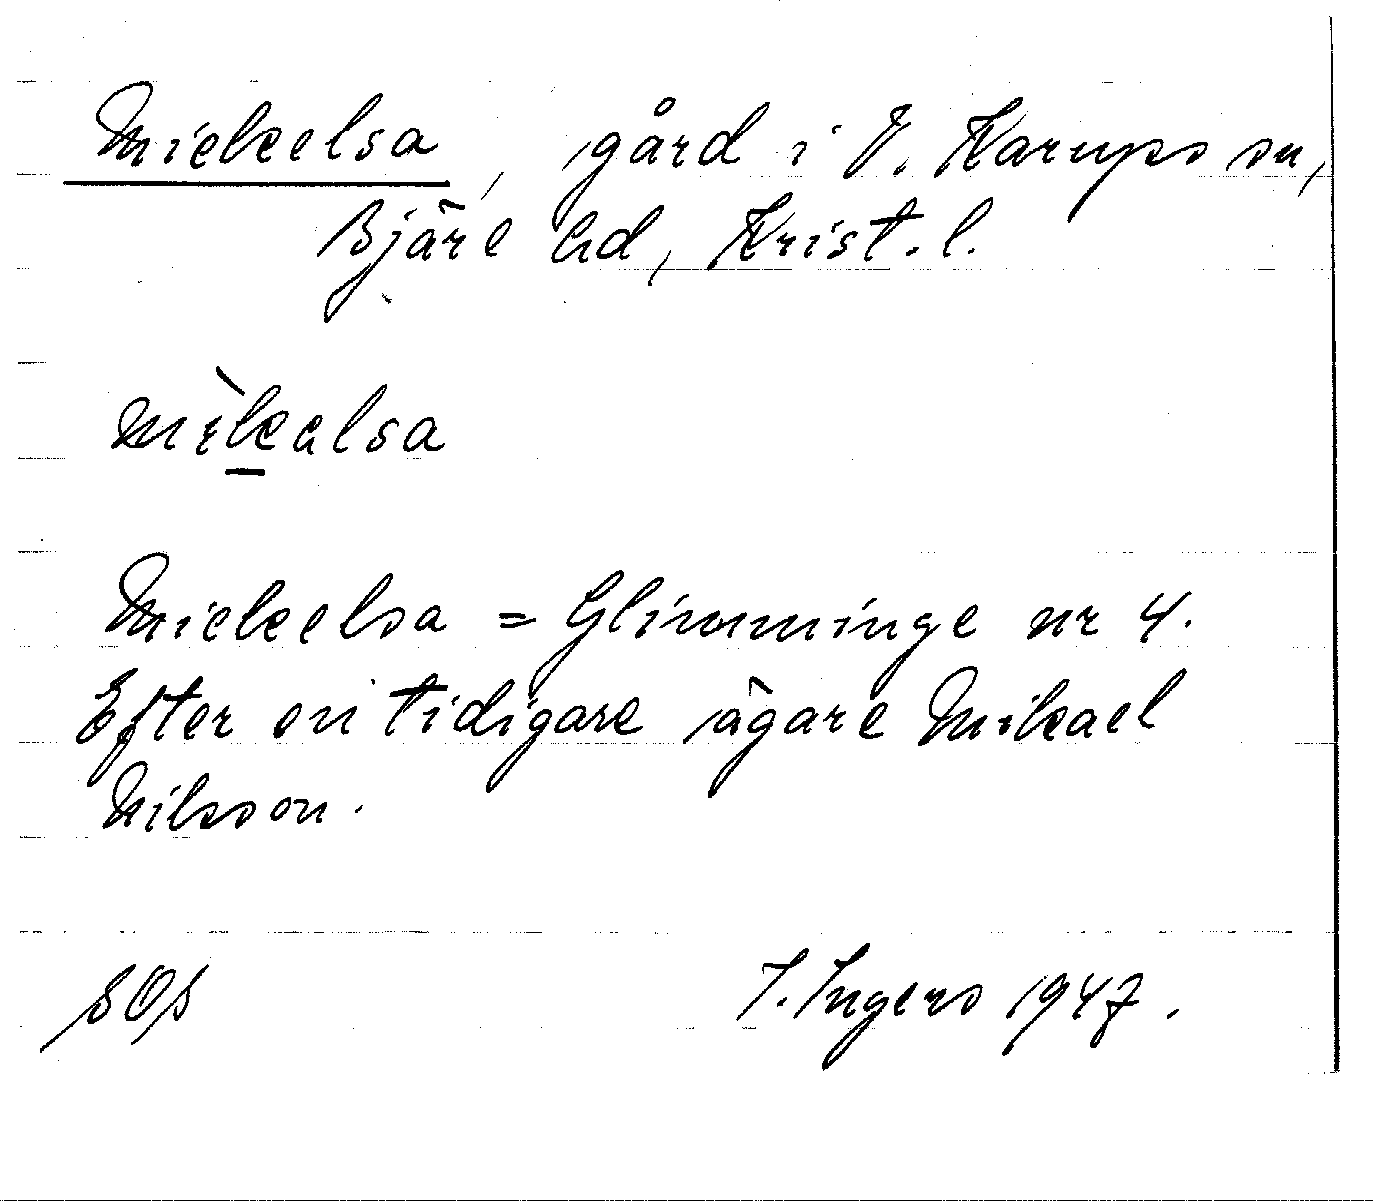 Mickelsa, gård i V. Karups sn,
Bjäre hd, Krist. l.
mìkalsa
Mickelsa = Glimminge nr 4.
Efter en tidigare ägare Mikael
Nilsson.
I. Ingers 1947.